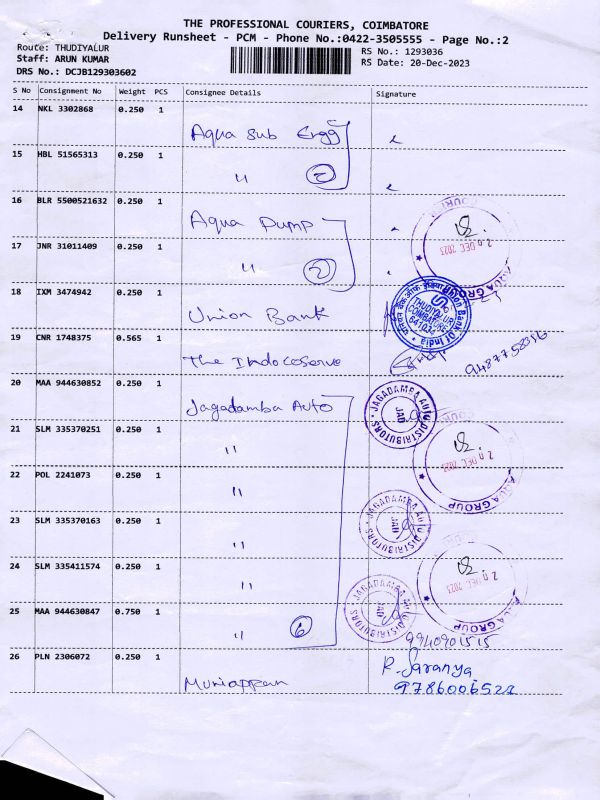 THE PROFESSIONAL COURIERS, COIMBATORE
Delivery Runsheet - PCM - Phone No.:0422-3505555 - Page No.:2
Route: THUDIYALUR
RS No.: 1293036
Staff: ARUN KUMAR
RS Date: 20-Dec-2023
DRS No.: DCJB129303602
S No Consignment No Weight PCS Consignee Details Signature
14 NKL 3302868 0.250 1
Aqua Sub Engg
15 HBL 51565313 0.250 1
" 2
16 BLR 5500521632 0.250 1
Aqua Pump
20 DEC 2023
AQUA GROUP
17 JNR 31011409 0.250 1
" 2
18 IXM 3474942 0.250 1
Union Bank
Union Bank Of India
THUDIYALUR
COIMBATORE
641034
19 CNR 1748375 0.565 1
The Indocoserve
20 MAA 944630852 0.250 1
Jagadamba Auto
JAGADAMBA AUTO DISTRIBUTORS
JAD
21 SLM 335370251 0.250 1
"
20 DEC 2023
AQUA GROUP
22 POL 2241073 0.250 1
"
23 SLM 335370163 0.250 1
"
JAGADAMBA AUTO DISTRIBUTORS
JAD
24 SLM 335411574 0.250 1
"
20 DEC 2023
AQUA GROUP
25 MAA 944630847 0.750 1
" 6
JAGADAMBA AUTO DISTRIBUTORS
JAD
9940901515
26 PLN 2306072 0.250 1
Muniappan
R. Saranya